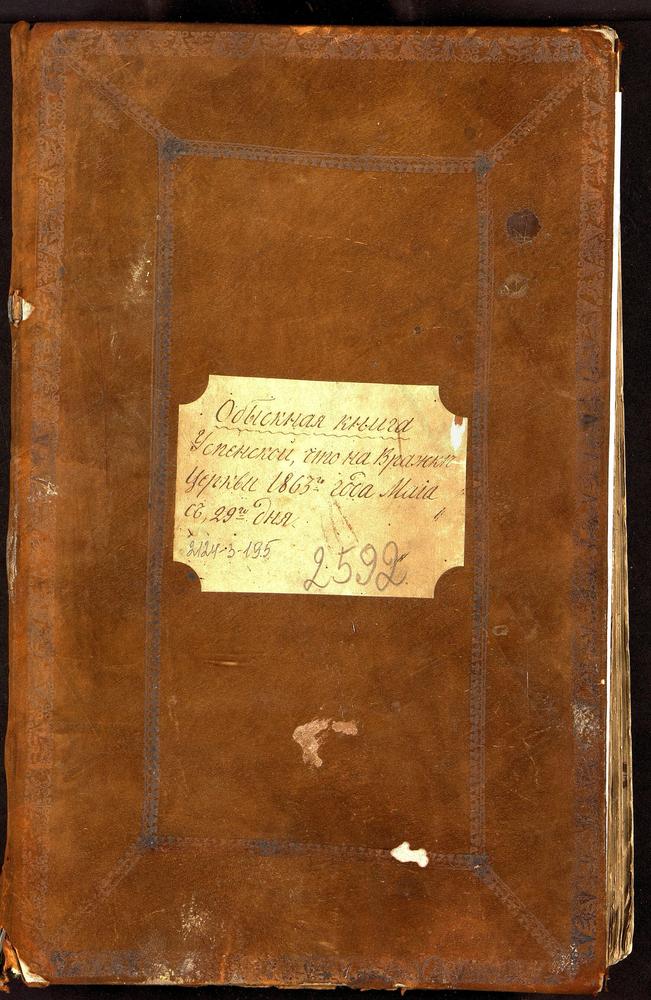 Обыскная книга
Успенской, что на Вражкѣ
Церкви 1863го года Маія
съ, 29го дня.
2124-3-195
2592